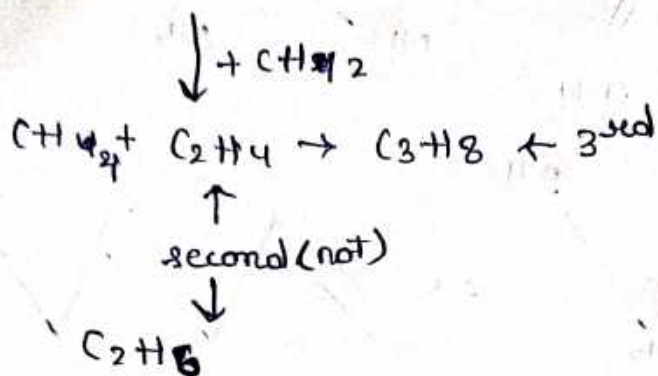 ↓ + CH2
CH4 + C2H4 → C3H8 ← 3red
↑
second (not)
↓
C2H6